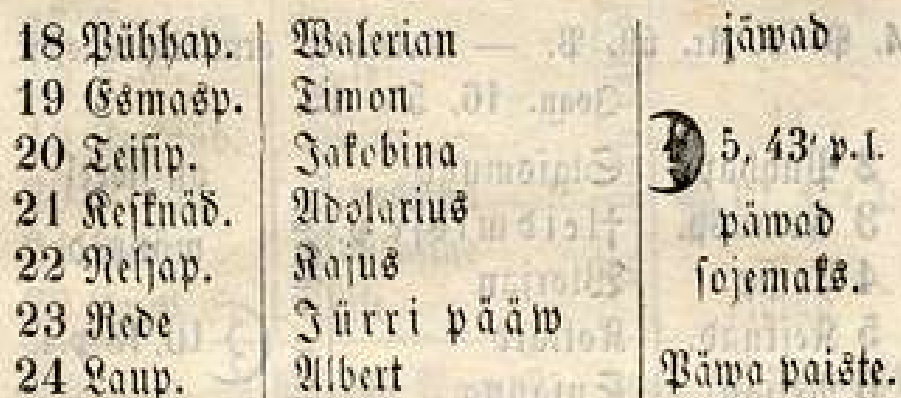 18 Pühhap. Walerian jäwad
19 Esmasp. Timon
20 Teisip. Jakobina 5, 43′ p.l.
21 Kesknäd. Adolarius päwad
22 Neljap. Kajus sojemaks.
23 Rede Jürri pääw
24 Laup. Albert Päwa paiste.